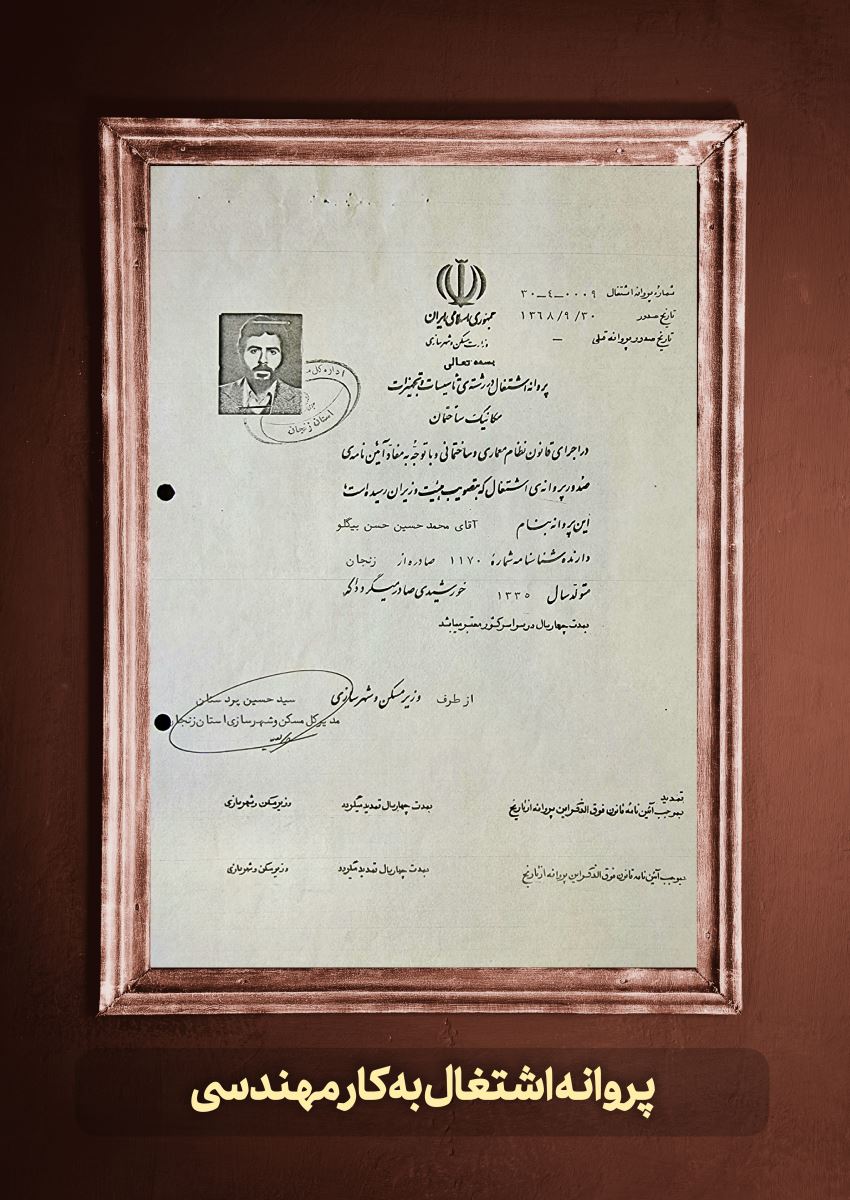 شماره پروانه اشتغال ۰۰۰۹-٤-۳۰
تاریخ صدور ۱۳٦۸/۹/۳۰
تاریخ صدور پروانه قبلی —
جمهوری اسلامی ایران
وزارت مسکن و شهرسازی
بسمه تعالی
پروانه اشتغال در رشته‌ی تاسیسات و تجهیزات
مکانیک ساختمان
اداره کل
استان زنجان
در اجرای قانون نظام معماری و ساختمانی و با توجه به مفاد آئین نامه‌ی
صدور پروانه‌ی اشتغال که بتصویب هیئت وزیران رسیده است
این پروانه بنام آقای محمد حسین حسن بیگلو
دارنده شناسنامه شماره ۱۱۷۰ صادره از زنجان
متولد سال ۱۳۳۵ خورشیدی صادر میگردد که
بمدت چهار سال در سراسر کشور معتبر میباشد
از طرف وزیر مسکن و شهرسازی
سید حسین یزدستان
مدیرکل مسکن و شهرسازی استان زنجان
تمدید
بموجب آئین نامه قانون فوق الذکر این پروانه از تاریخ بمدت چهار سال تمدید میگردد وزیر مسکن و شهرسازی
بموجب آئین نامه قانون فوق الذکر این پروانه از تاریخ بمدت چهار سال تمدید میگردد وزیر مسکن و شهرسازی
پروانه اشتغال به کار مهندسی